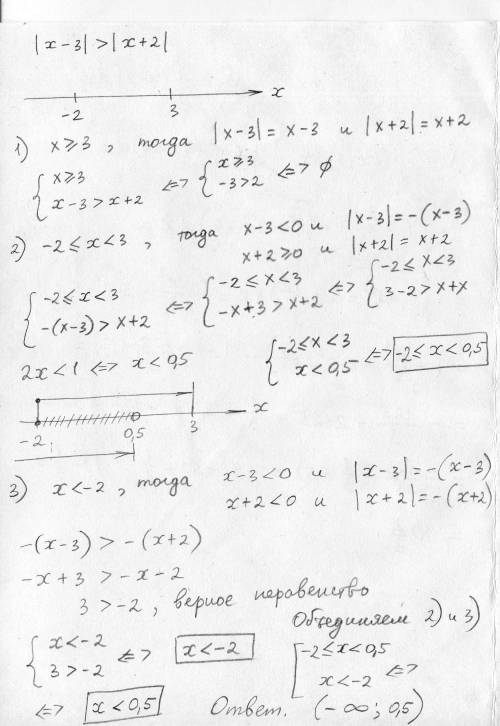 |x-3|>|x+2|
-2 3 x
1) x≥3, тогда |x-3|=x-3 и |x+2|=x+2
{ x≥3 <=> { x≥3 <=> ∅
x-3>x+2 -3>2
2) -2≤x<3, тогда x-3<0 и |x-3|=-(x-3)
x+2≥0 и |x+2|=x+2
{ -2≤x<3 <=> { -2≤x<3 <=> { -2≤x<3
-(x-3)>x+2 -x+3>x+2 3-2>x+x
2x<1 <=> x<0,5 { -2≤x<3 <=> -2≤x<0,5
x<0,5
-2 0,5 3 x
3) x<-2, тогда x-3<0 и |x-3|=-(x-3)
x+2<0 и |x+2|=-(x+2)
-(x-3)>-(x+2)
-x+3>-x-2
3>-2, верное неравенство
Объединяем 2) и 3)
{ x<-2 <=> x<-2 [ -2≤x<0,5 <=>
3>-2 x<-2
<=> x<0,5 Ответ. (-∞; 0,5)